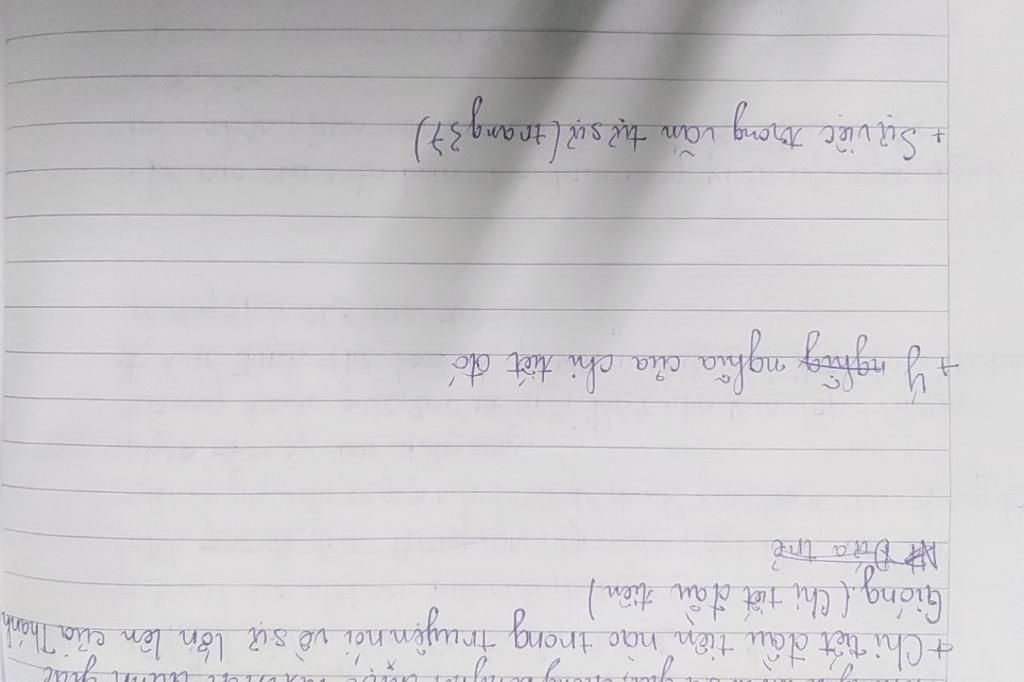 + Chi tiết đầu tiên nào trong truyện nói về sự lớn lên của Thánh
Gióng. (Chi tiết đầu tiên)
Đứa trẻ
+ Ý nghĩa của chi tiết đó
+ Sự việc trong văn tự sự (trang 37)